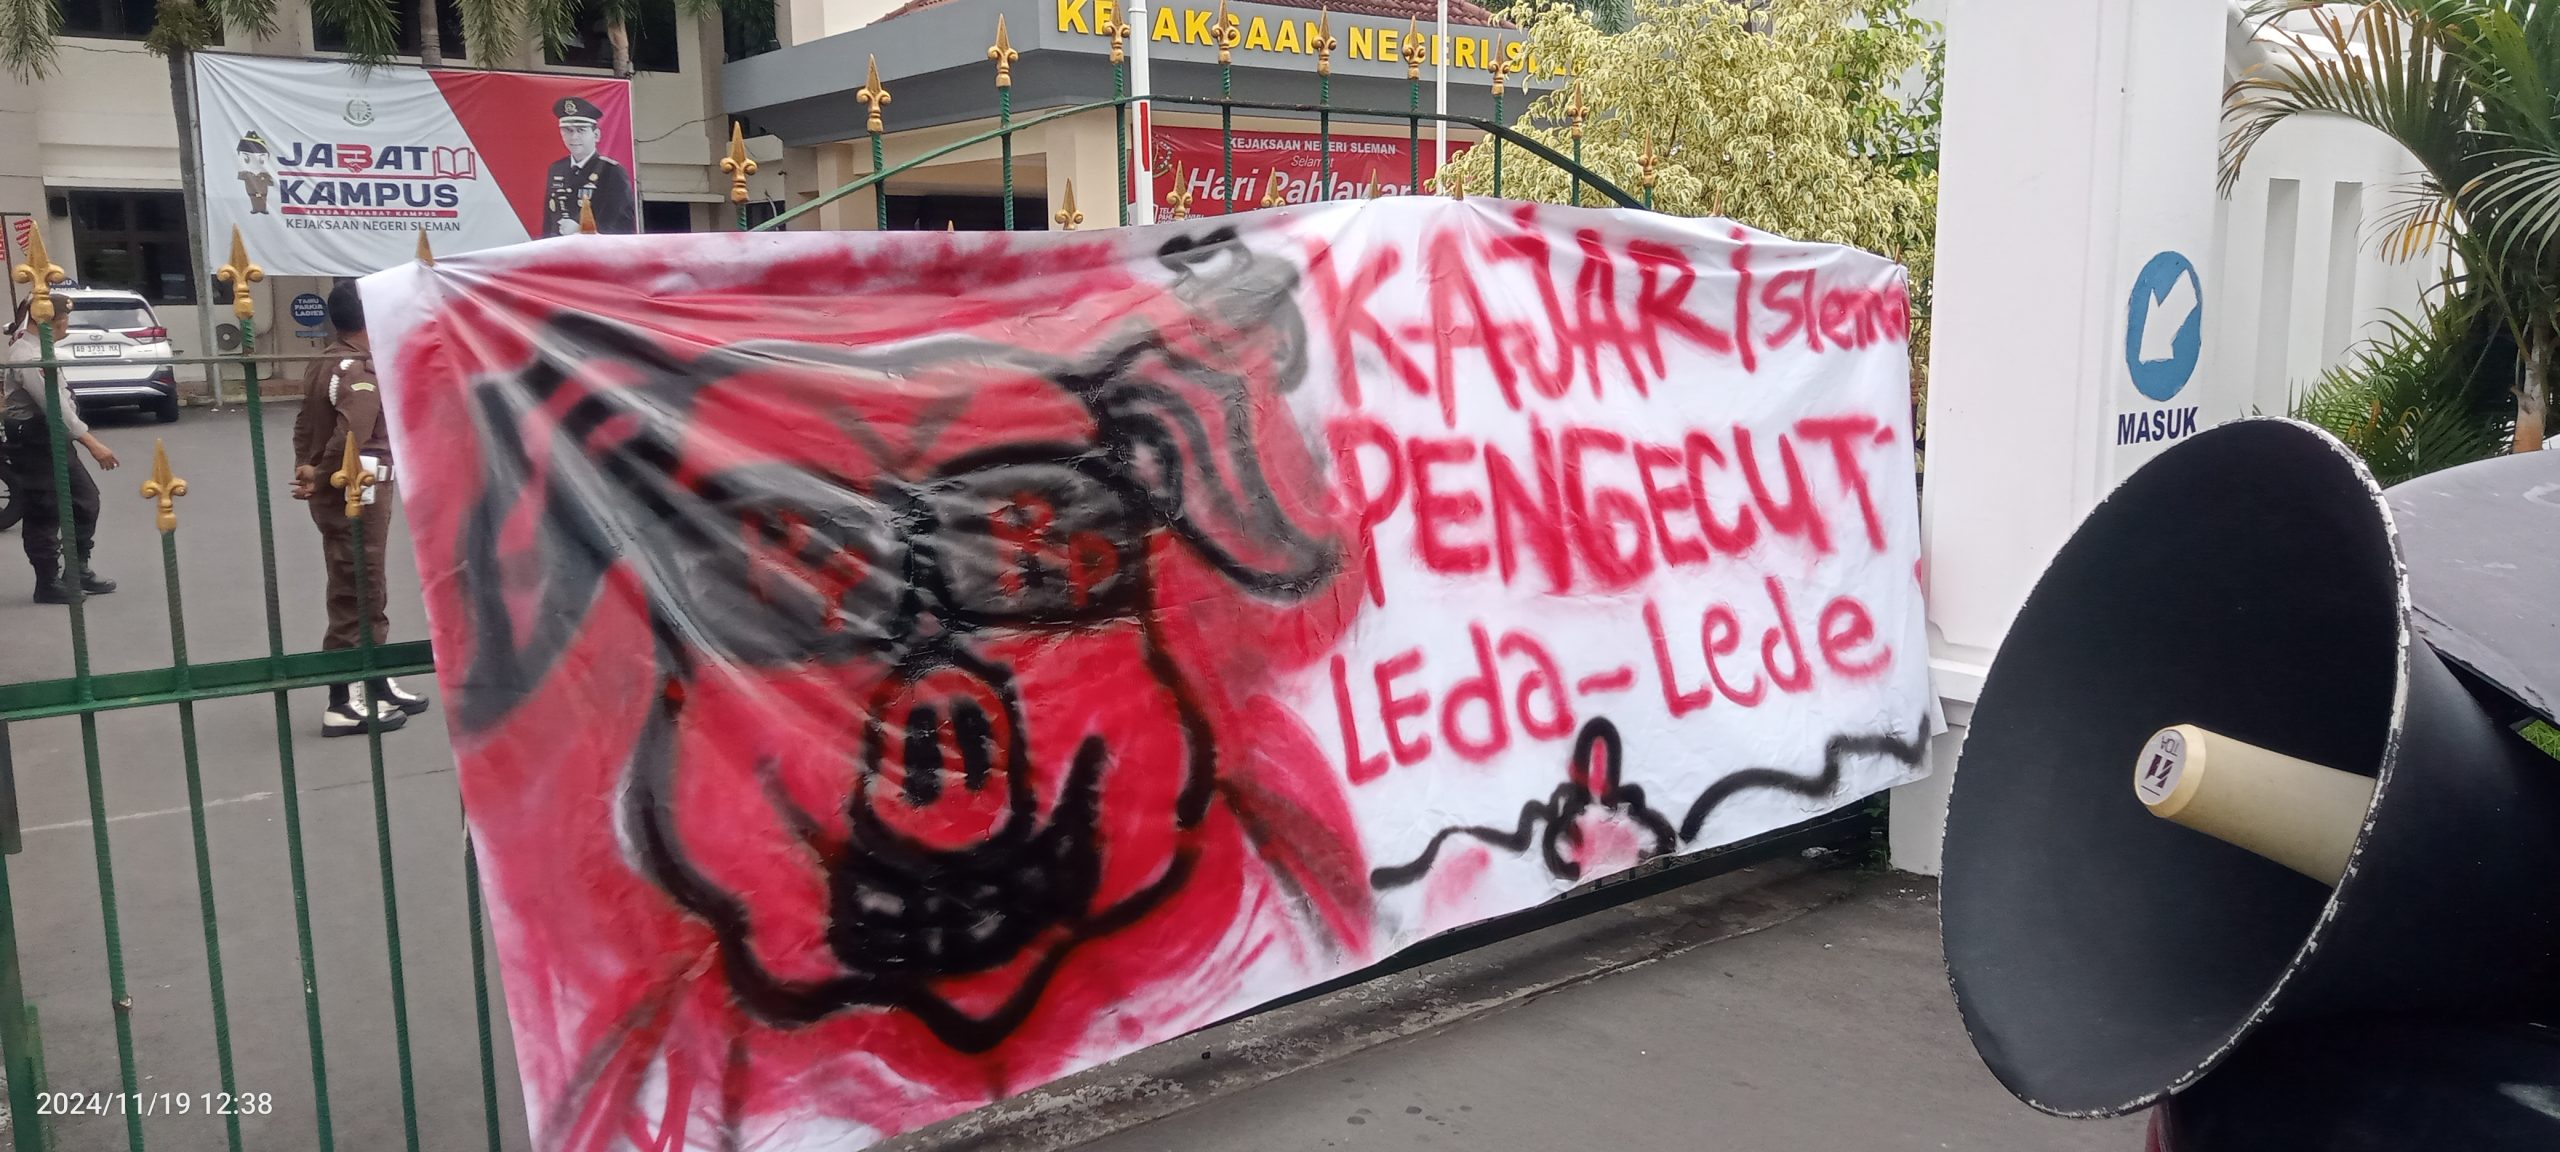 KEJAKSAAN NEGERI SLE
JABAT
KAMPUS
JAKSA SAHABAT KAMPUS
KEJAKSAAN NEGERI SLEMAN
KEJAKSAAN NEGERI SLEMAN
Selamat
Hari Pahlawan
TAMU
PARKIR
LADIES
AB 1731 MX
KAJARI Sleman
PENGECUT
LEda-Lede
Rp Rp
MASUK
TOA
2024/11/19 12:38